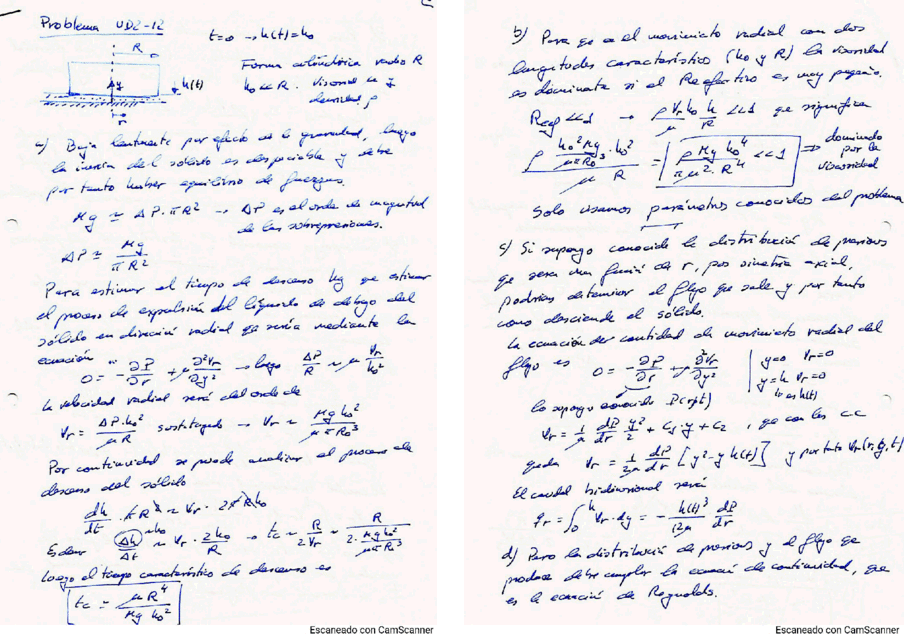 Problema UD2-12
t=0 → h(t)=h₀
R
Forma cilíndrica radio R
h₀ ≪ R. viscosidad μ y
densidad ρ
h(t)
r
a) Baja lentamente por efecto de la gravedad, luego
la inercia del sólido es despreciable y debe
por tanto haber equilibrio de fuerzas.
Mg ≃ ΔP·πR² → ΔP es el orden de magnitud
de las sobrepresiones.
ΔP ≃ Mg / πR²
Para estimar el tiempo de descenso hay que estimar
el proceso de expulsión del líquido de debajo del
sólido en dirección radial que sería mediante la
ecuación
0 = -∂P/∂r + μ ∂²Vr/∂y² → luego ΔP/R ~ μ Vr/h₀²
la velocidad radial será del orden de
Vr = ΔP·h₀² / μR sustituyendo → Vr ~ Mg h₀² / μπR₀³
Por continuidad se puede analizar el proceso de
descenso del sólido
dh/dt · πR² ~ Vr · 2πR h₀
Es decir Δh~h₀ / Δt ~ Vr · 2h₀/R → tc ~ R/2Vr ~ R / (2· Mg h₀² / μπR³)
luego el tiempo característico de descenso es
tc ≃ μR⁴ / Mg h₀²
Escaneado con CamScanner
b) Para que en el movimiento radial con dos
longitudes característico (h₀ y R) la viscosidad
es dominante si el Reefectivo es muy pequeño.
Reef ≪ 1 → ρVr h₀/μ h/R ≪ 1 que significa
ρ (h₀² Mg / μπR₀³ · h₀²) / μ R = ρ Mg h₀⁴ / πμ²·R⁴ ≪ 1 ⇒ dominado
por la
viscosidad
Solo usamos parámetros conocidos del problema
c) Si supongo conocida la distribución de presiones
que sera una función de r, por simetria axial,
podrias determinar el flujo que sale y por tanto
como desciende el sólido.
la ecuación de cantidad de movimiento radial del
flujo es 0 = -∂P/∂r + μ ∂²Vr/∂y² | y=0 Vr=0
y=h Vr=0
h es h(t)
lo supongo conocido P(r,t)
Vr = 1/μ dP/dr y²/2 + C₁ y + C₂, que con las CC
queda Vr = 1/2μ dP/dr [y² - y h(t)] y por tanto Vr(r,y,t)
El caudal bidimensional será
qr = ∫₀ʰ Vr·dy = - h(t)³/12μ dP/dr
d) Pero la distribución de presiones y el flujo que
produce debe cumplir la ecuación de continuidad, que
es la ecuación de Reynolds.
Escaneado con CamScanner